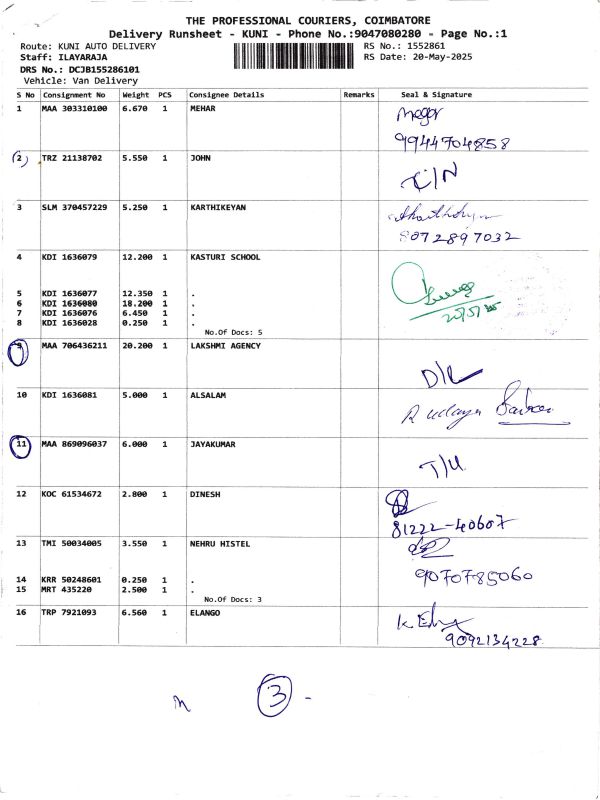 THE PROFESSIONAL COURIERS, COIMBATORE
Delivery Runsheet - KUNI - Phone No.:9047080280 - Page No.:1
Route: KUNI AUTO DELIVERY RS No.: 1552861
Staff: ILAYARAJA RS Date: 20-May-2025
DRS No.: DCJB155286101
Vehicle: Van Delivery
S No Consignment No Weight PCS Consignee Details Remarks Seal & Signature
1 MAA 303310100 6.670 1 MEHAR
9944704858
2 TRZ 21138702 5.550 1 JOHN
3 SLM 370457229 5.250 1 KARTHIKEYAN
8072897032
4 KDI 1636079 12.200 1 KASTURI SCHOOL
5 KDI 1636077 12.350 1 .
6 KDI 1636080 18.200 1 .
7 KDI 1636076 6.450 1 .
8 KDI 1636028 0.250 1 .
No.Of Docs: 5
9 MAA 706436211 20.200 1 LAKSHMI AGENCY
D/L
10 KDI 1636081 5.000 1 ALSALAM
11 MAA 869096037 6.000 1 JAYAKUMAR
12 KOC 61534672 2.800 1 DINESH
81222-40607
13 TMI 50034005 3.550 1 NEHRU HISTEL
9070785060
14 KRR 50248601 0.250 1 .
15 MRT 435220 2.500 1 .
No.Of Docs: 3
16 TRP 7921093 6.560 1 ELANGO
9092134228
3